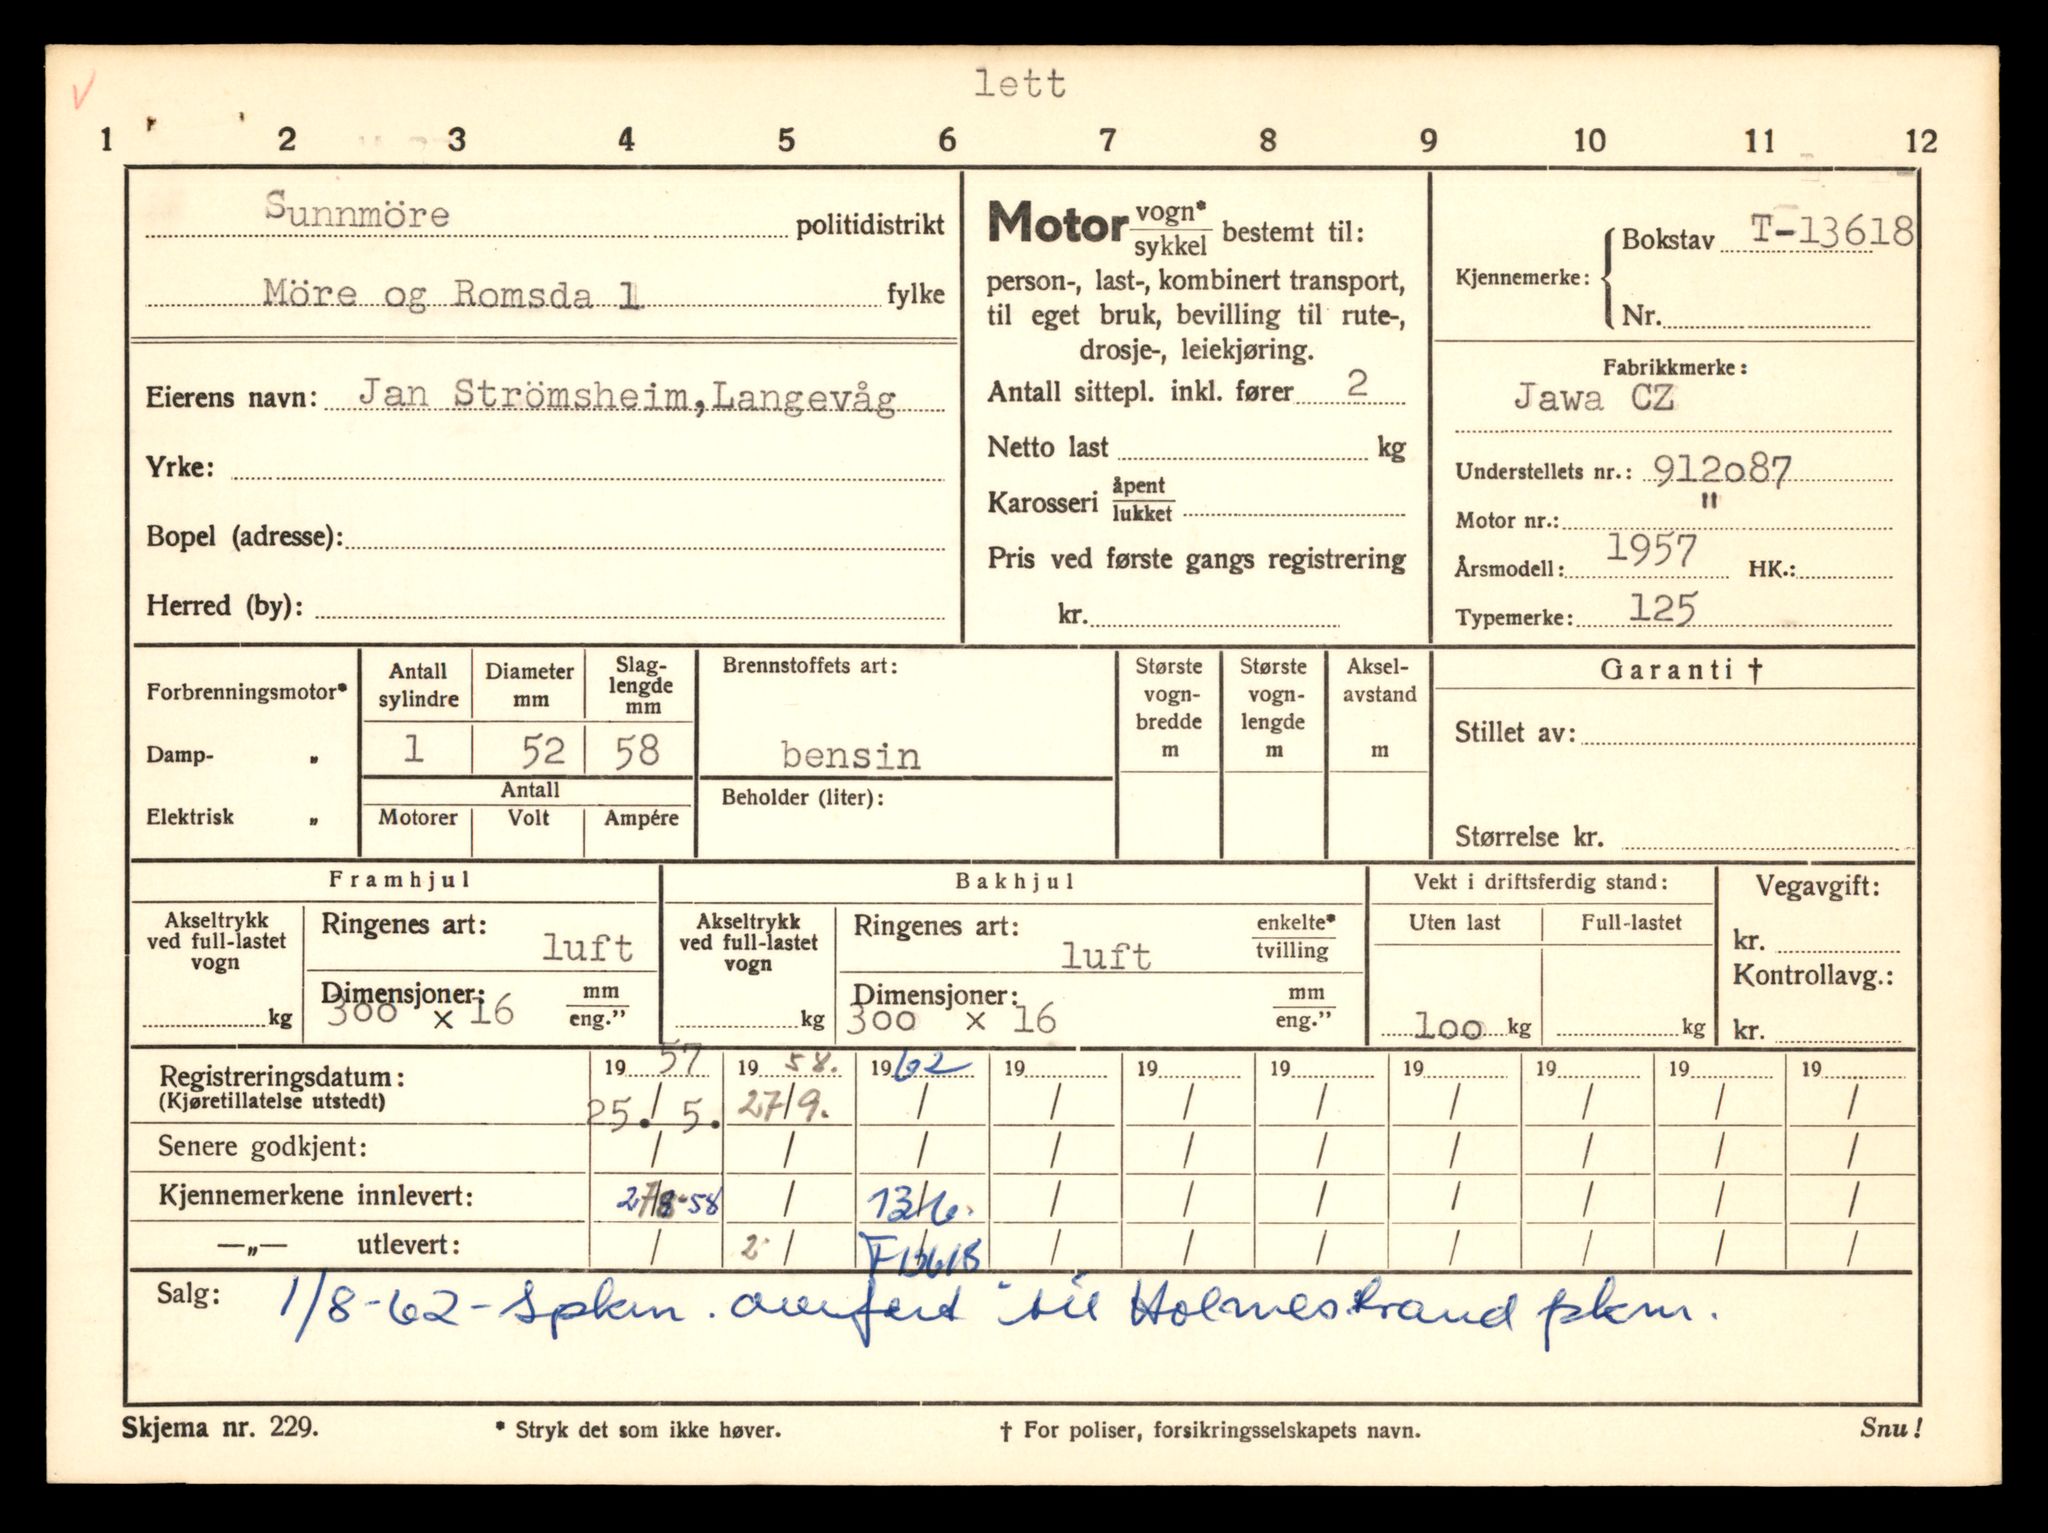 lett
1 2 3 4 5 6 7 8 9 10 11 12
Sunnmöre politidistrikt
Möre og Romsda l fylke
Eierens navn: Jan Strömsheim, Langevåg
Yrke:
Bopel (adresse):
Herred (by):
Motor vogn* / sykkel bestemt til:
person-, last-, kombinert transport,
til eget bruk, bevilling til rute-,
drosje-, leiekjøring.
Antall sittepl. inkl. fører 2
Netto last kg
Karosseri åpent / lukket
Pris ved første gangs registrering
kr.
Kjennemerke: Bokstav T-13618
Nr.
Fabrikkmerke:
Jawa CZ
Understellets nr.: 912o87
Motor nr.: "
Årsmodell: 1957 HK.:
Typemerke: 125
Forbrenningsmotor*
Damp- „
Elektrisk „
Antall sylindre
Diameter mm
Slag-lengde mm
1 52 58
Antall
Motorer Volt Ampére
Brennstoffets art:
bensin
Beholder (liter):
Største vogn-bredde m
Største vogn-lengde m
Aksel-avstand m
Garanti †
Stillet av:
Størrelse kr.
Framhjul
Akseltrykk
ved full-lastet
vogn
kg
Ringenes art:
luft
Dimensjoner: mm / eng.”
300 x 16
Bakhjul
Akseltrykk
ved full-lastet
vogn
kg
Ringenes art: enkelte* / tvilling
luft
Dimensjoner: mm / eng.”
300 x 16
Vekt i driftsferdig stand:
Uten last Full-lastet
100 kg kg
Vegavgift:
kr.
Kontrollavg.:
kr.
Registreringsdatum: 19 57 19 58. 19 62 19 19 19 19 19 19 19
(Kjøretillatelse utstedt) 25./5. 27/9. / / / / / / / /
Senere godkjent: / / / / / / / / / /
Kjennemerkene innlevert: 27/8-58 / 13/6. / / / / / / /
—„— utlevert: / 2 / / / / / / / /
Salg: 1/8-62 - Spkm. overført til Holmestrand pkm.
Skjema nr. 229. * Stryk det som ikke høver. † For poliser, forsikringsselskapets navn. Snu!